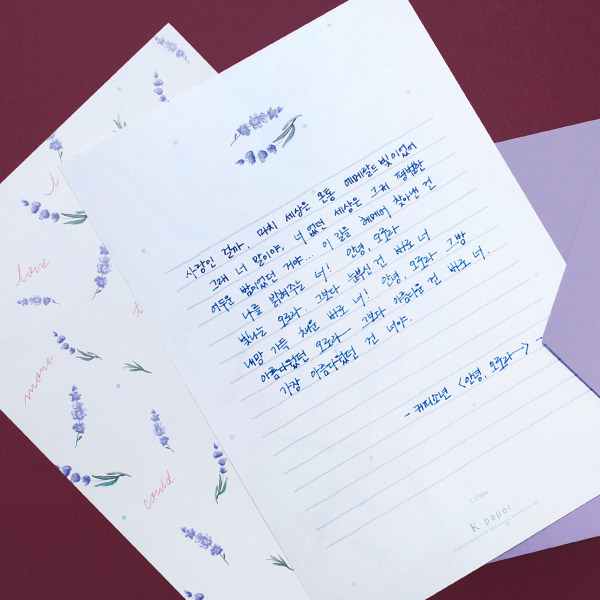 사랑인 걸까, 마치 세상은 온통 에메랄드 빛이었어
그래 너 말이야, 너 없던 세상은, 그저 평범한
어두운 밤이었던 거야... 이 길을 헤매어 찾아낸 건
나를 밝혀주는 너! 안녕, 오로라
빛나는 오로라.. 그보다 눈부신 건 바로 너
내맘 가득 채운 바로 너! 안녕, 오로라 그 밤
아름다웠던 오로라— 그보다 아름다운 건 바로 너..
가장 아름다웠던 건 너야..
- 커피소년 <안녕, 오로라—>
K. paper
love
more
could